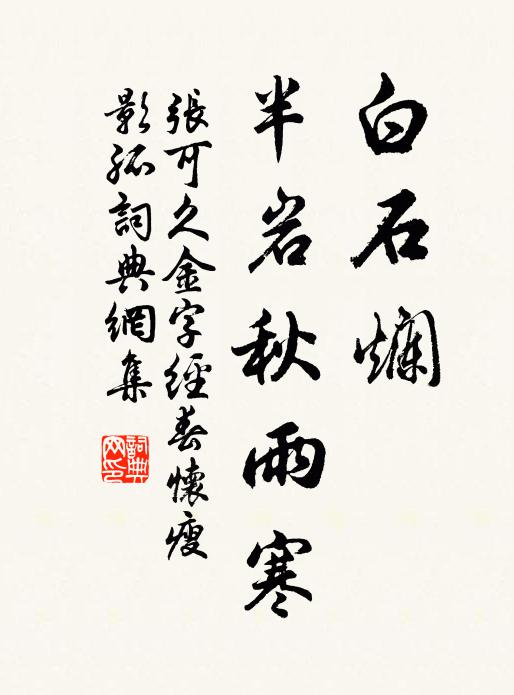 白石爛
半岩秋雨寒
張可久金字經春懷瘦
影孤詞典網集
詞典网印